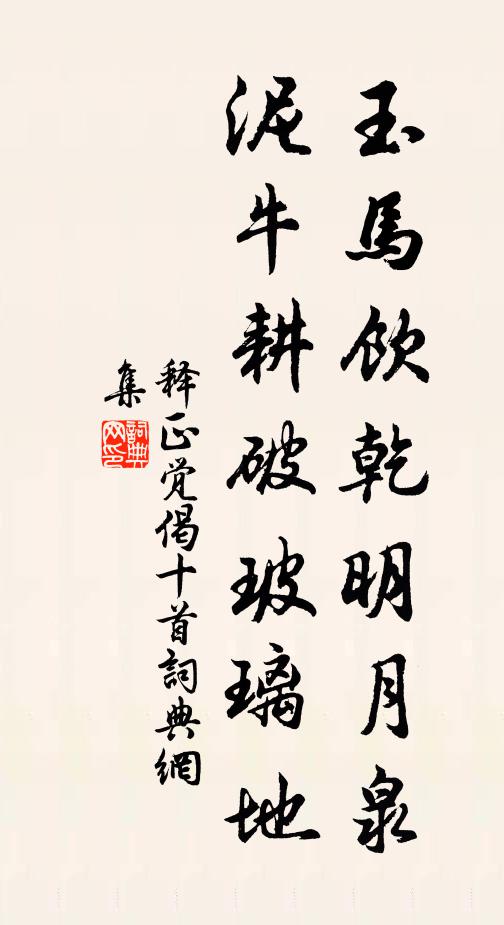 玉馬飲乾明月泉
泥牛耕破玻璃地
释正觉偈十首詞典網
集
詞典网印